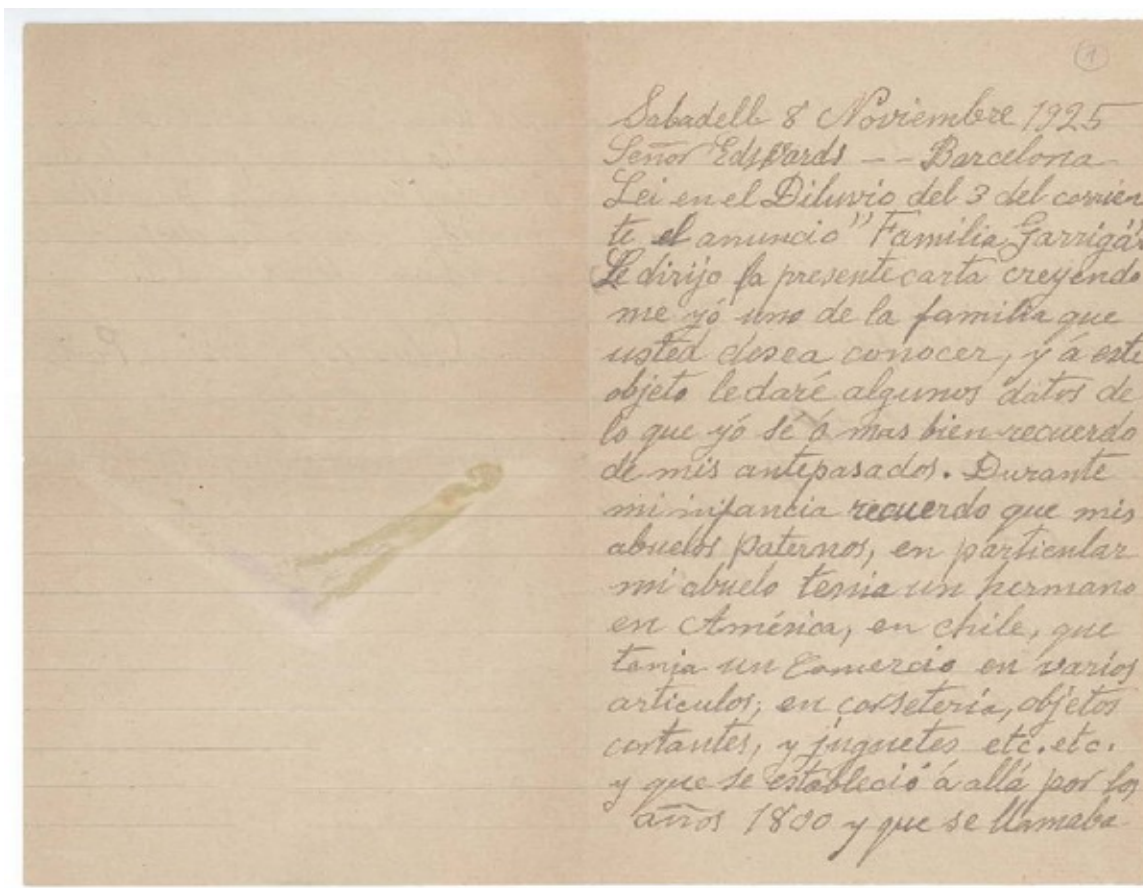 1
Sabadell 8 Noviembre 1925
Señor Edswards -- Barcelona
Lei en el Diluvio del 3 del corrien
te el anuncio "Familia Garrigá"
Le dirijo la presente carta creyendo
me yó uno de la familia que
usted desea conocer, y á este
objeto le daré algunos datos de
lo que yó sé ó mas bien recuerdo
de mis antepasados. Durante
mi infancia recuerdo que mis
abuelos paternos, en particular
mi abuelo tenia un hermano
en América, en chile, que
tenia un Comercio en varios
articulos; en corsetería, objetos
cortantes, y juguetes etc. etc.
y que se estableció á allá por los
años 1800 y que se llamaba